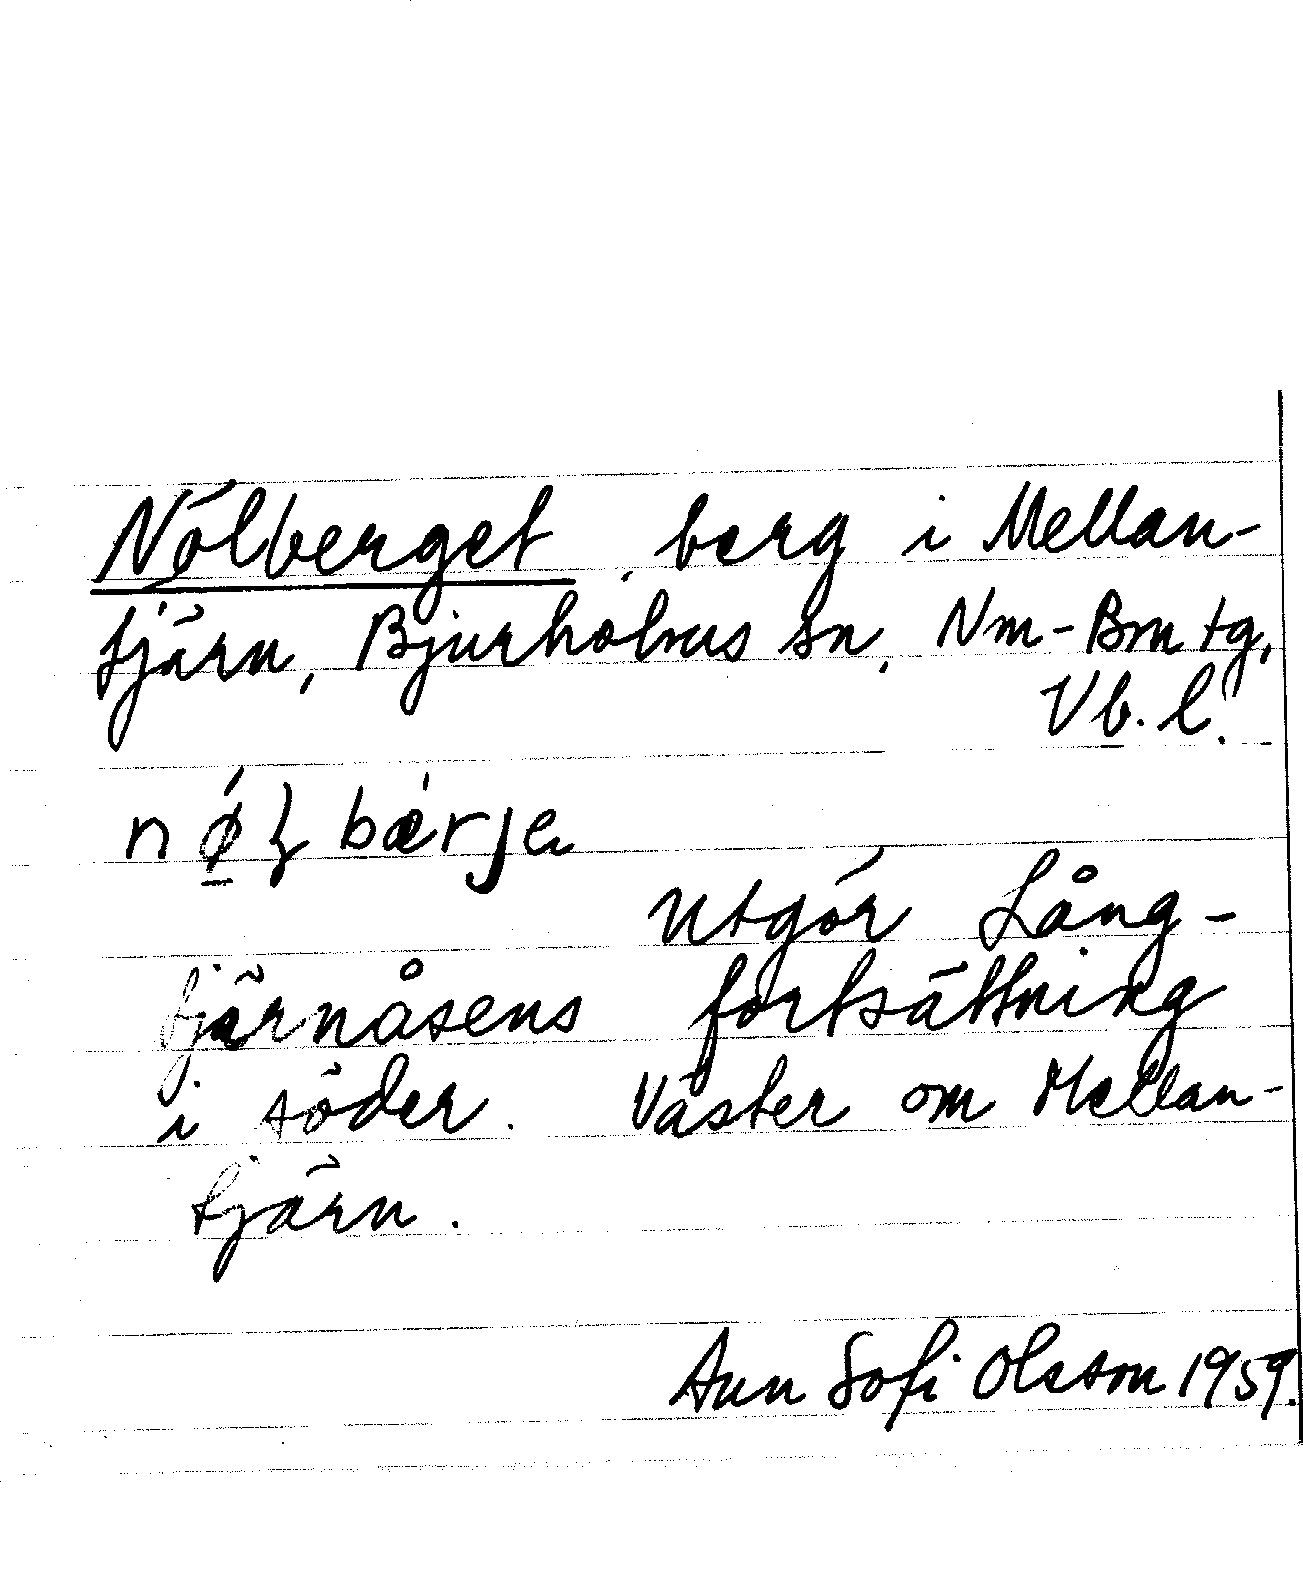 Nölberget, berg i Mellan-
tjärn, Bjurholms sn, Nm-Bm tg,
Vb. l.
bærje
Utgör Lång-
tjärnåsens fortsättning
i söder. Väster om Mellan-
tjärn.
Ann Sofi Olsson 1959.